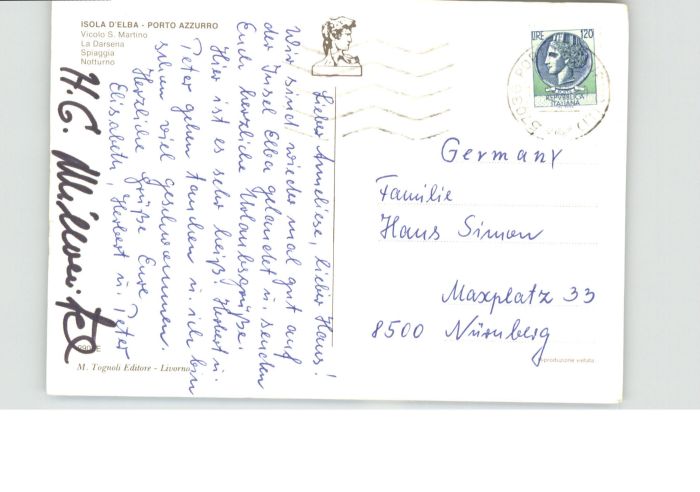 ISOLA D'ELBA - PORTO AZZURRO
Vicolo S. Martino
La Darsena
Spiaggia
Notturno
LIRE 120
REPVBBLICA
ITALIANA
Liebe Anneliese, lieber Hans!
Wir sind wieder mal gut auf
der Insel Elba gelandet u. senden
Euch herzliche Urlaubsgrüße.
Hier ist es sehr heiß! Herbert u.
Peter gehen tauchen u. ich bin
schon viel geschwommen.
Herzliche Grüße Eure
Elisabeth, Herbert u. Peter
H.G.
Germany
Familie
Hans Simon
Maxplatz 33
8500 Nürnberg
M. Tognoli Editore - Livorno
Riproduzione vietata